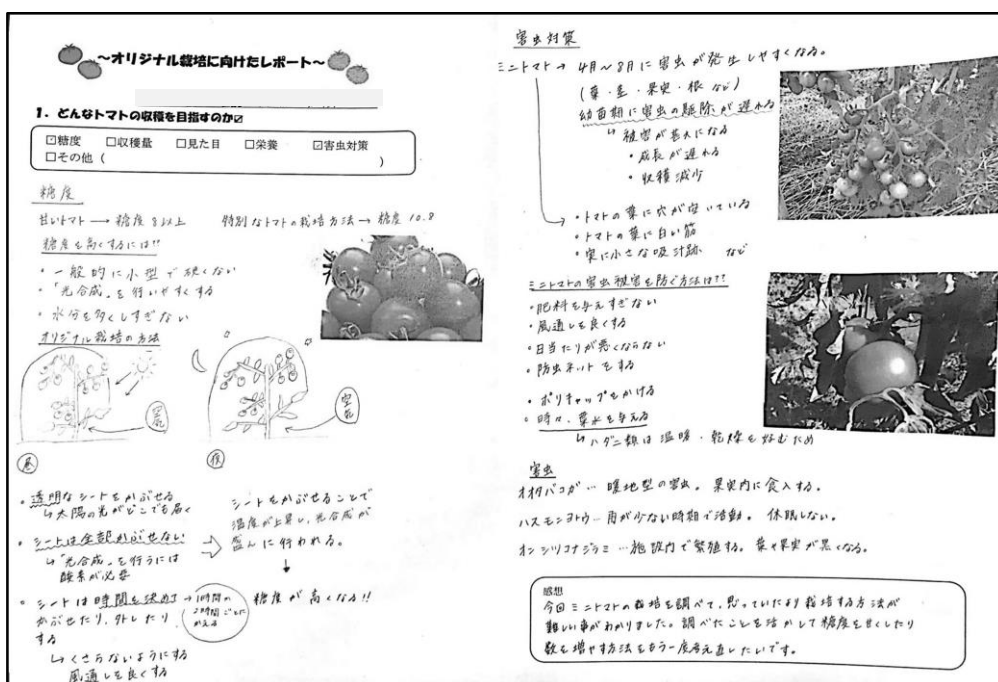 ~オリジナル栽培に向けたレポート~
1. どんなトマトの収穫を目指すのか☑
☑糖度 □収穫量 □見た目 □栄養 ☑害虫対策
□その他 ( )
糖度
甘いトマト → 糖度8以上 特別なトマトの栽培方法 → 糖度10.8
糖度を高くするには!!
・一般的に小型で硬くない
・「光合成」を行いやすくする
・水分を多くしすぎない
オリジナル栽培の方法
空気
空気
昼
夜
・透明なシートをかぶせる
↳太陽の光がどこでも届く
・シートは全部かぶせない
↳「光合成」を行うには
酸素が必要
・シートは時間を決めて
かぶせたり、外したり
する
↳くさらないようにする
風通しを良くする
→ 1時間か
2時間ごとに
かえる
シートをかぶせることで
温度が上昇し、光合成が
盛んに行われる。
↓
糖度が高くなる!!
害虫対策
ミニトマト → 4月~8月に害虫が発生しやすくなる。
(葉・茎・果実・根 など)
幼苗期に害虫の駆除が遅れる
↳被害が甚大になる
・成長が遅れる
・収穫減少
・トマトの葉に穴が空いている
・トマトの葉に白い筋
・実に小さな吸汁跡 など
ミニトマトの害虫被害を防ぐ方法は??
・肥料を与えすぎない
・風通しを良くする
・日当たりが悪くならない
・防虫ネットをする
・ポリキャップをかける
・時々、葉水を与える
↳ハダニ類は温暖・乾燥を好むため
害虫
オオタバコガ… 暖地型の害虫。果実内に食入する。
ハスモンヨトウ…雨が少ない時期で活動。休眠しない。
オンシツコナジラミ…施設内で繁殖する。葉や果実が黒くなる。
感想
今回ミニトマトの栽培を調べて、思っていたより栽培する方法が
難しい事がわかりました。調べたことを活かして糖度を甘くしたり
数を増やす方法をもう一度考え直したいです。